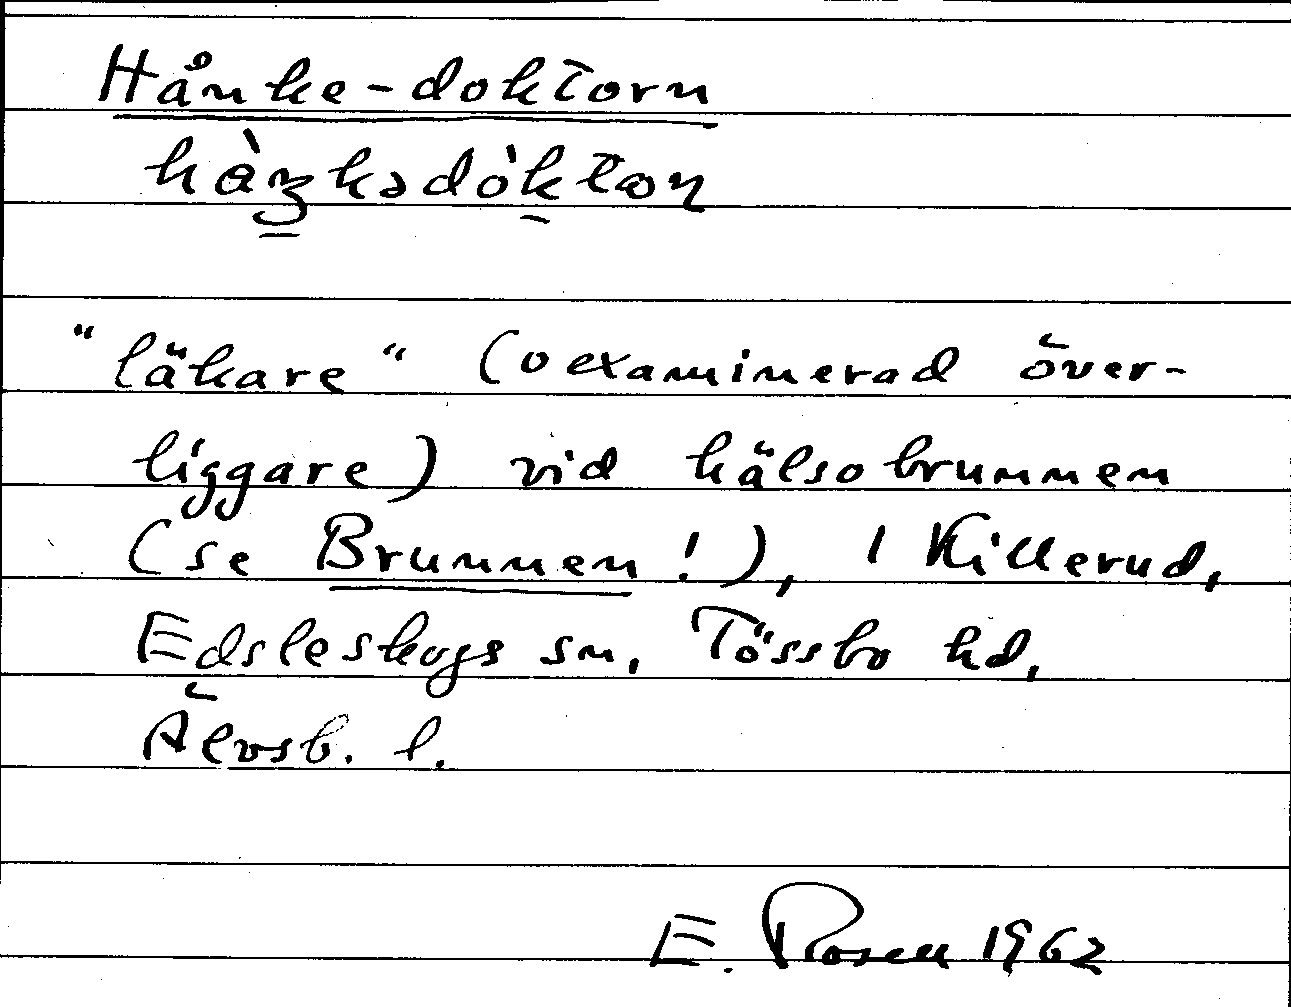 Hånke-doktorn
"läkare" (oexaminerad över-
liggare) vid hälsobrunnen
(se Brunnen!), i Killerud,
Edsleskogs sn, Tössbo hd,
Älvsb. l.
E. Rosen 1962